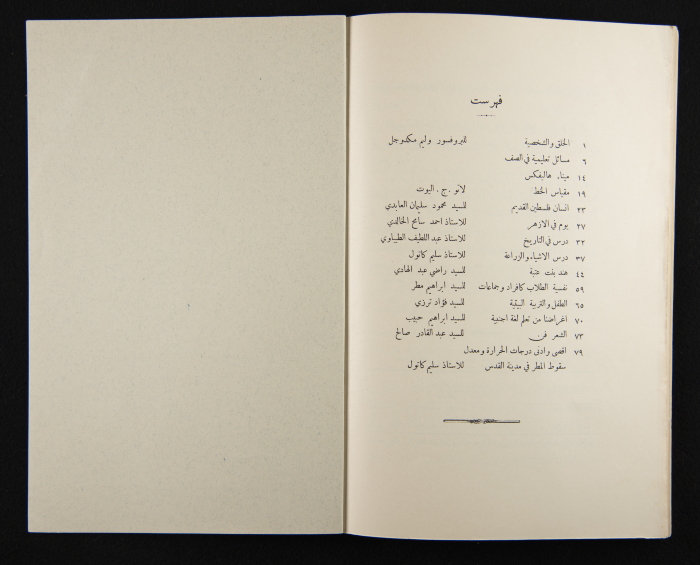 فهرست
١ الخلق والشخصية للبروفسور وليم مكدوجل
٦ مسائل تعليمية في الصف
١٤ ميناء هاليفكس
١٩ مقياس الخط لاثو . ج . البوت
٢٣ انسان فلسطين القديم للسيد محمود سليمان العابدي
٢٧ يوم في الازهر للاستاذ احمد سامح الخالدي
٣٢ درس في التاريخ للاستاذ عبد اللطيف الطيباوي
٣٧ درس الاشياء والزراعة للاستاذ سليم كاتول
٤٤ هند بنت عتبة للسيد راضي عبد الهادي
٥٩ نفسية الطلاب كافراد وجماعات للسيد ابراهيم مطر
٦٥ الطفل والتربية البيتية للسيد فؤاد ترزي
٧٠ اغراضنا من تعلم لغة اجنبية للسيد ابراهيم حبيب
٧٣ الشعر فن للسيد عبد القادر صالح
٧٩ اقصى وادنى درجات الحرارة ومعدل
سقوط المطر في مدينة القدس للاستاذ سليم كاتول